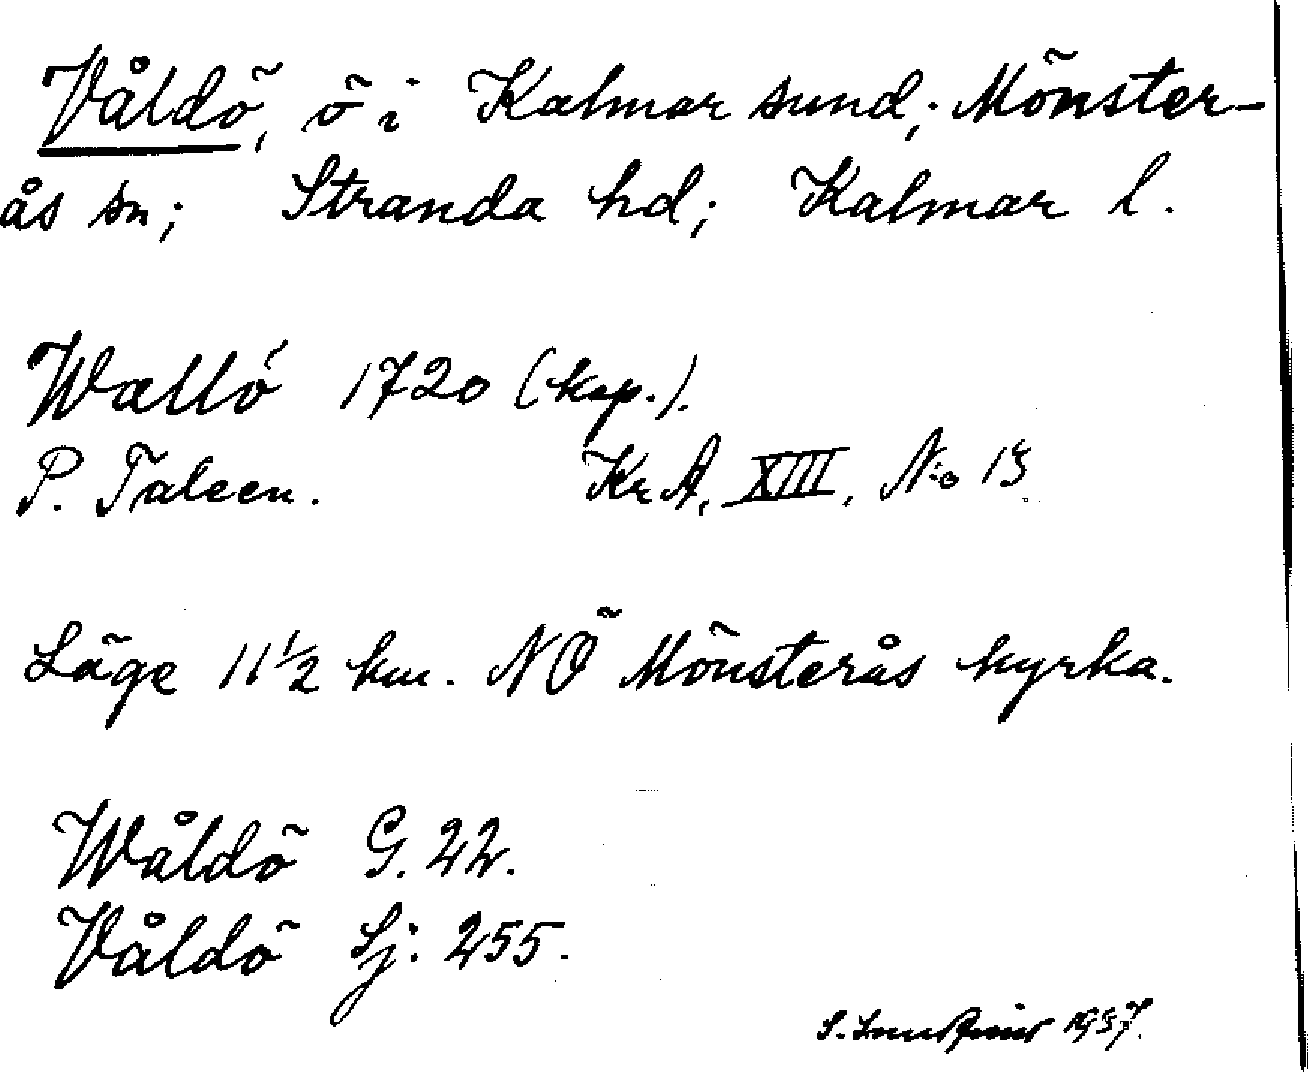 Våldö, ö i Kalmar sund; Mönster-
ås sn; Stranda hd; Kalmar l.
Wallö 1720 (kop.).
P. Taleen. Kr A, XIII, No 13
Läge 11 1/2 km. NÖ Mönsterås kyrka.
Wåldö G. 22.
Våldö Sj: 255.
S. 1937.